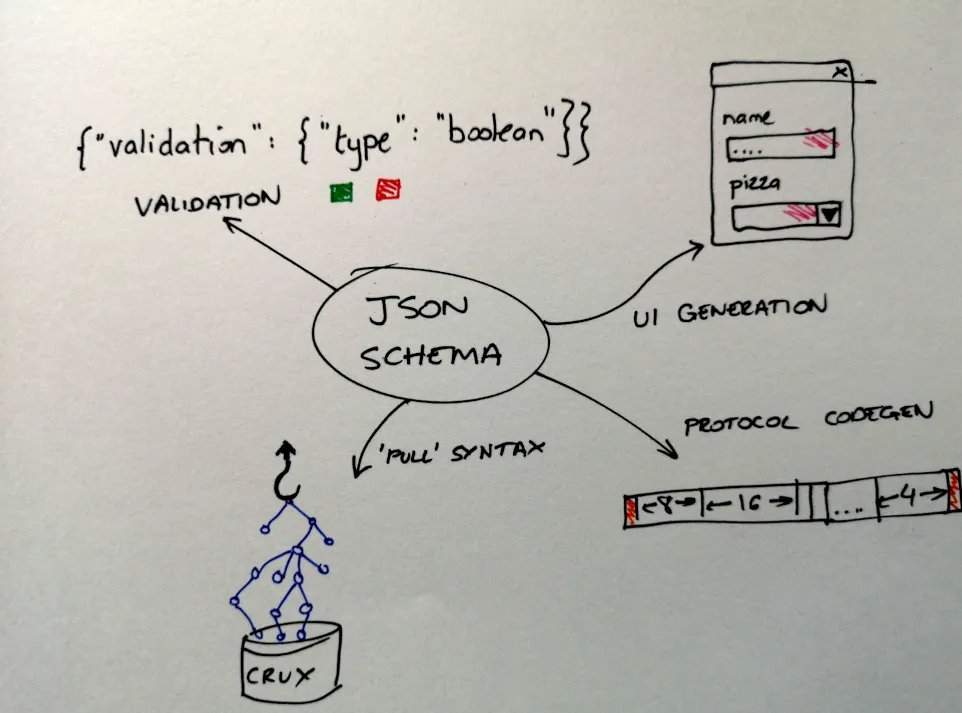 {"validation": {"type": "boolean"}}
VALIDATION
x
name
....
pizza
JSON
SCHEMA
UI GENERATION
PROTOCOL CODEGEN
'PULL' SYNTAX
8 16 .... 4
CRUX